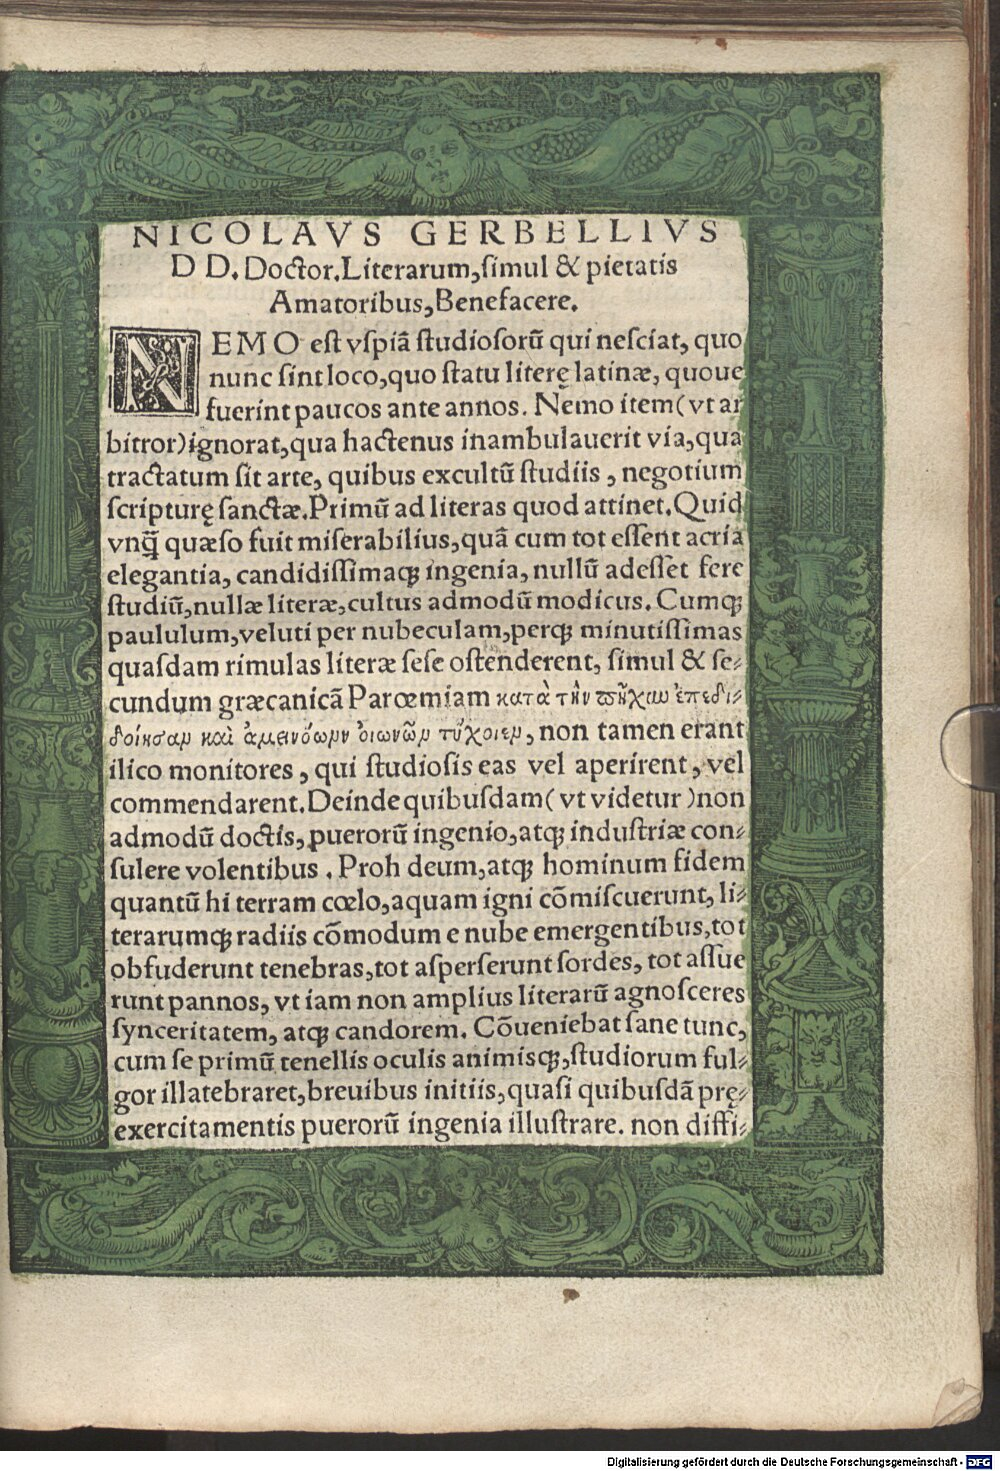 NICOLAVS GERBELLIVS
D D. Doctor. Literarum, simul & pietatis
Amatoribus, Benefacere.
NEMO est vspiã studiosorũ qui nesciat, quo
nunc sint loco, quo statu literę latinæ, quoue
fuerint paucos ante annos. Nemo item (vt ar
bitror) ignorat, qua hactenus inambulauerit via, qua
tractatum sit arte, quibus excultũ studiis, negotium
scripturę sanctæ. Primũ ad literas quod attinet. Quid
vnq̃ quæso fuit miserabilius, quã cum tot essent acria
elegantia, candidissimaqꝫ ingenia, nullũ adesset fere
studiũ, nullæ literæ, cultus admodũ modicus. Cumqꝫ
paululum, veluti per nubeculam, perqꝫ minutissimas
quasdam rimulas literæ sese ostenderent, simul & se⸗
cundum græcanicã Parœmiam κατὰ τὴν
καὶ, non tamen erant
ilico monitores, qui studiosis eas vel aperirent, vel
commendarent. Deinde quibusdam (vt videtur) non
admodũ doctis, puerorũ ingenio, atqꝫ industriæ con⸗
sulere volentibus. Proh deum, atqꝫ hominum fidem
quantũ hi terram cœlo, aquam igni cõmiscuerunt, li⸗
terarumqꝫ radiis cõmodum e nube emergentibus, tot
obfuderunt tenebras, tot asperserunt sordes, tot assue
runt pannos, vt iam non amplius literarũ agnosceres
synceritatem, atqꝫ candorem. Cõueniebat sane tunc,
cum se primũ tenellis oculis animisqꝫ, studiorum ful⸗
gor illatebraret, breuibus initiis, quasi quibusdã prę⸗
exercitamentis puerorũ ingenia illustrare. non diffi⸗
Digitalisierung gefördert durch die Deutsche Forschungsgemeinschaft - DFG